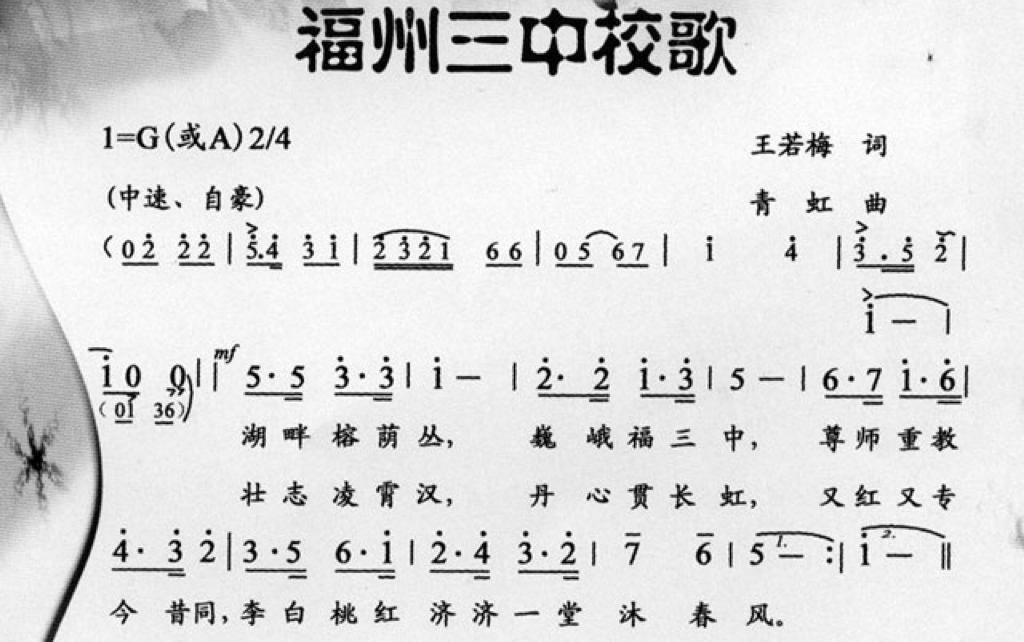 福州三中校歌
1=G(或A)2/4
王若梅 词
(中速、自豪)
青 虹 曲
(0 2̇ 2̇ 2̇ | 5̇.4̇ 3̇ 1̇ | 2̇ 3̇ 2̇ 1̇ 6 6 | 0 5 6 7 | 1̇ 4̇ | 3̇ . 5̇ 2̇ |
1̇ — |
1̇ 0 0) | | mf 5·5 3̇·3̇ | 1̇ — | 2̇· 2̇ 1̇·3̇ | 5 — | 6·7 1̇·6̇ |
(0 1̇ 3 6)
湖畔榕荫丛, 巍峨福三中, 尊师重教
壮志凌霄汉, 丹心贯长虹, 又红又专
4̇· 3̇ 2̇ | 3̇·5 6·1̇ | 2̇·4̇ 3̇·2̇ | 7 6 | 5 1. — :| 1̇ 2. — ‖
今昔同,李白桃红济济一堂沐春风。